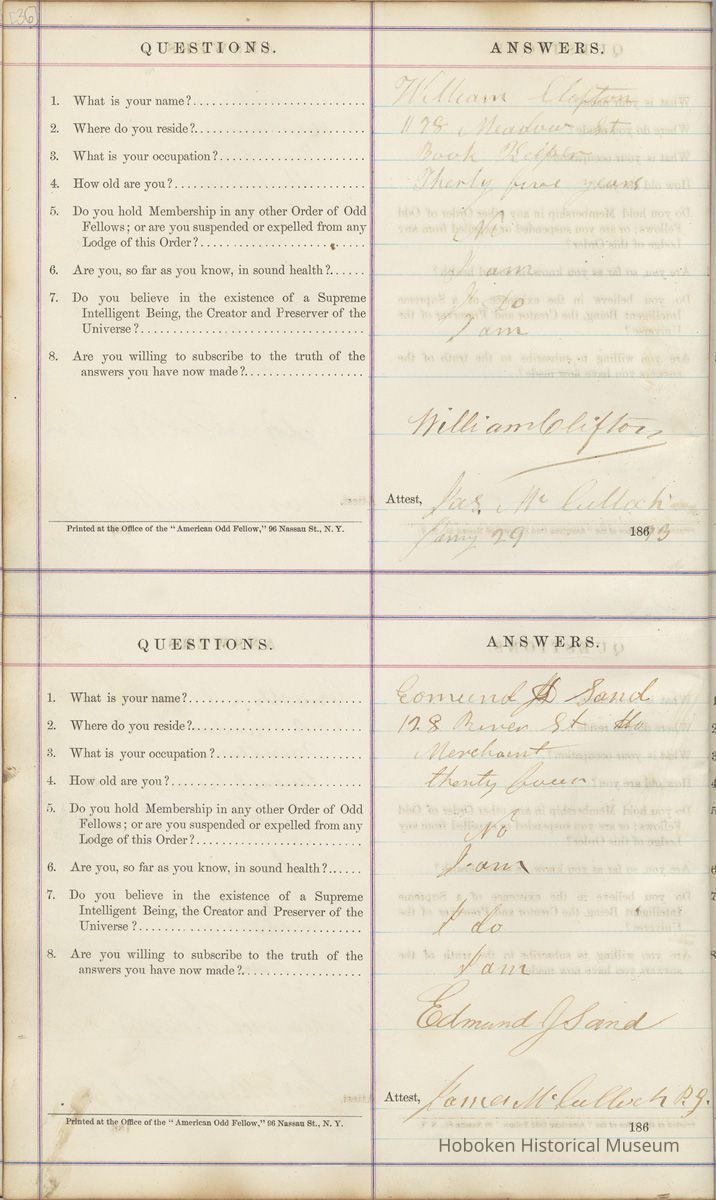 [36]
QUESTIONS.
ANSWERS.
1. What is your name?
William Clifton
2. Where do you reside?
1128 Meadow St
3. What is your occupation?
Book Keeper
4. How old are you?
Therty five years
5. Do you hold Membership in any other Order of Odd
Fellows; or are you suspended or expelled from any
Lodge of this Order?
No
6. Are you, so far as you know, in sound health?
I am
7. Do you believe in the existence of a Supreme
Intelligent Being, the Creator and Preserver of the
Universe?
I do
8. Are you willing to subscribe to the truth of the
answers you have now made?
I am
William Clifton
Attest, Jas. McCulloch
Printed at the Office of the "American Odd Fellow," 96 Nassau St., N. Y.
Jany 29 186 73
QUESTIONS.
ANSWERS.
1. What is your name?
Edmund J Sand
2. Where do you reside?
128 River St Ho
3. What is your occupation?
Merchant
4. How old are you?
therty four
5. Do you hold Membership in any other Order of Odd
Fellows; or are you suspended or expelled from any
Lodge of this Order?
No
6. Are you, so far as you know, in sound health?
I am
7. Do you believe in the existence of a Supreme
Intelligent Being, the Creator and Preserver of the
Universe?
I do
8. Are you willing to subscribe to the truth of the
answers you have now made?
I am
Edmund J Sand
Attest, James McCulloch P.G.
Printed at the Office of the "American Odd Fellow," 96 Nassau St., N. Y.
186
Hoboken Historical Museum